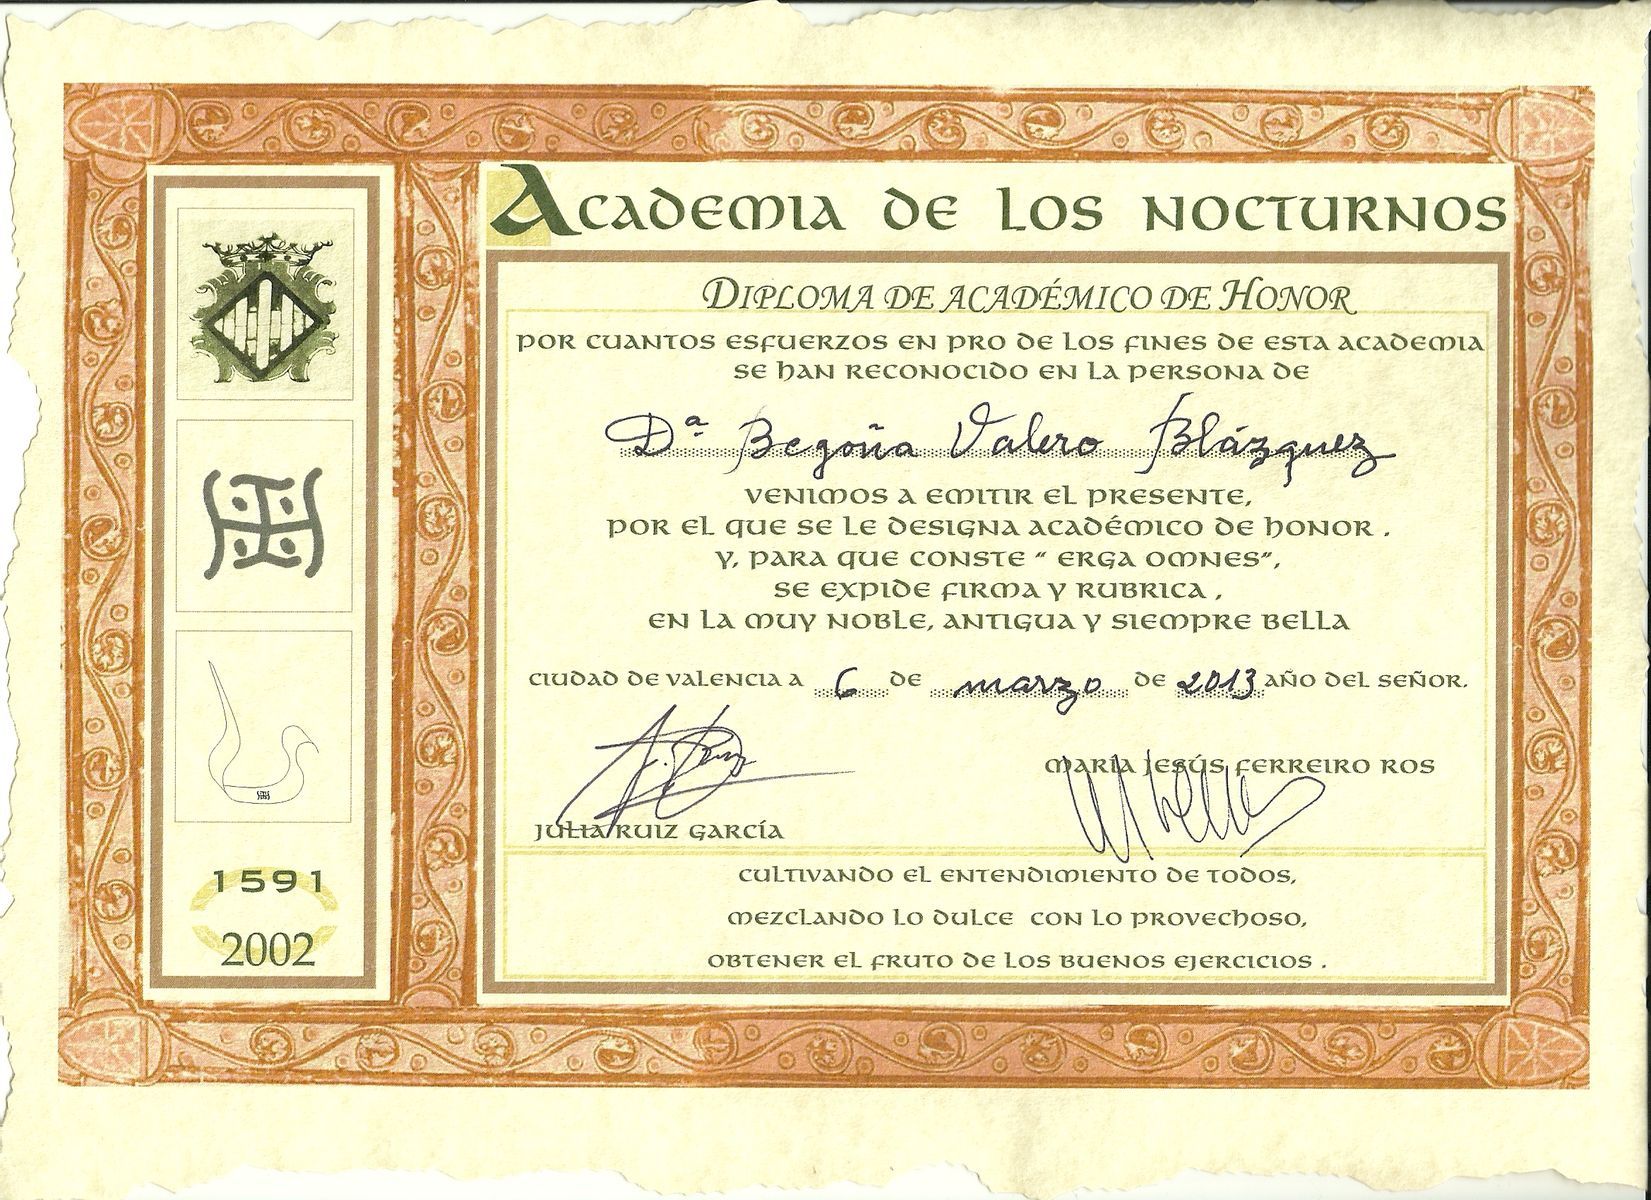 Academia de los Nocturnos
Diploma de Académico de Honor
por cuantos esfuerzos en pro de los fines de esta academia
se han reconocido en la persona de
Dª Begoña Valero Blázquez
venimos a emitir el presente,
por el que se le designa académico de honor .
y, para que conste “ erga omnes”,
se expide firma y rubrica ,
en la muy noble, antigua y siempre bella
ciudad de Valencia a 6 de marzo de 2013 año del Señor.
María Jesús Ferreiro Ros
Julia Ruiz García
cultivando el entendimiento de todos,
mezclando lo dulce con lo provechoso,
obtener el fruto de los buenos ejercicios .
1591
2002